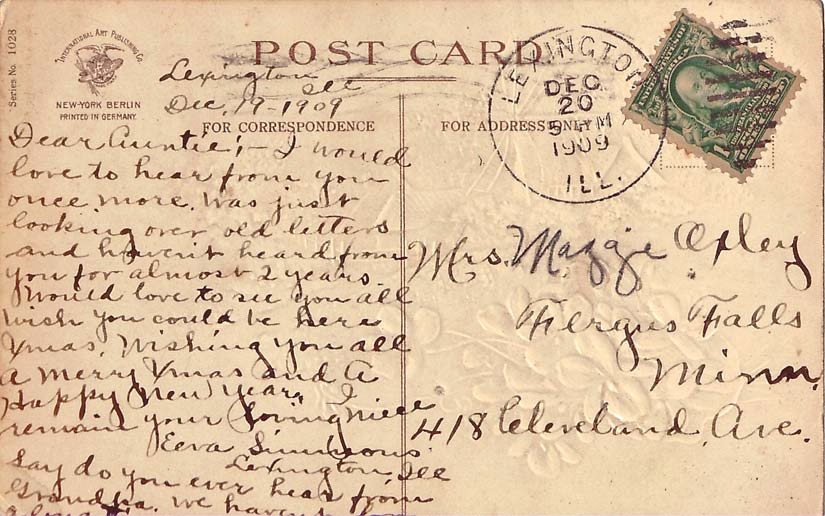 Series No. 1028
INTERNATIONAL ART PUBLISHING CO.
NEW-YORK BERLIN
PRINTED IN GERMANY.
POST CARD
Lexington
Ill
Dec. 19-1909
FOR CORRESPONDENCE
FOR ADDRESS ONLY
LEXINGTON
DEC
20
5 PM
1909
ILL.
Dear Auntie;- I would
love to hear from you
once more. Was just
looking over old letters
and haven't heard from
you for almost 2 years.
Would love to see you all
wish you could be here
Xmas. Wishing you all
a Merry Xmas and A
Happy New Year. I
remain your loving Niece
Eeva Simmons
Lexington, Ill
Say do you ever hear from
Grandpa. We haven't
Mrs. Maggie Oxley
Fergus Falls
Minn.
418 Cleveland, Ave.